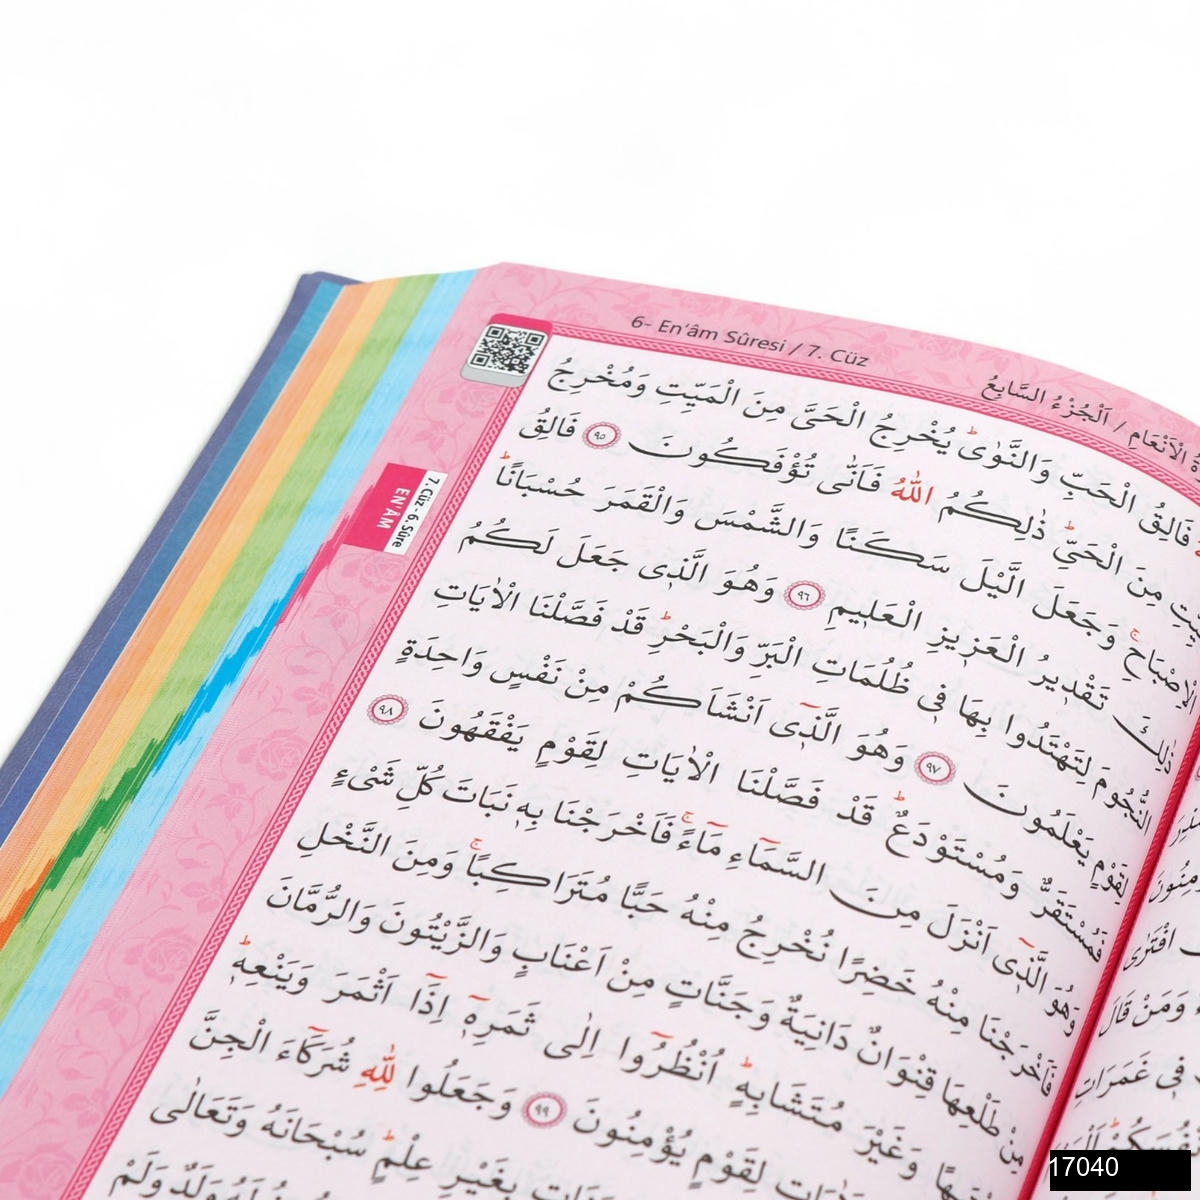 6- En'âm Sûresi / 7. Cüz
اَلْجُزْءُ السَّابِعُ / الْاَنْعَامِ
7. Cüz - 6. Sûre
EN'ÂM
فَالِقُ الْحَبِّ وَالنَّوٰىۜ يُخْرِجُ الْحَىَّ مِنَ الْمَيِّتِ وَمُخْرِجُ
مِنَ الْحَيِّۜ ذٰلِكُمُ اللّٰهُ فَاَنّٰى تُؤْفَكُونَ ﴿٩٥﴾ فَالِقُ
الْاِصْبَاحِۚ وَجَعَلَ الَّيْلَ سَكَنًا وَالشَّمْسَ وَالْقَمَرَ حُسْبَانًاۜ
ذٰلِكَ تَقْد۪يرُ الْعَز۪يزِ الْعَل۪يمِ ﴿٩٦﴾ وَهُوَ الَّذ۪ى جَعَلَ لَكُمُ
النُّجُومَ لِتَهْتَدُوا بِهَا ف۪ى ظُلُمَاتِ الْبَرِّ وَالْبَحْرِۜ قَدْ فَصَّلْنَا الْاٰيَاتِ
لِقَوْمٍ يَعْلَمُونَ ﴿٩٧﴾ وَهُوَ الَّذ۪ٓى اَنْشَاَكُمْ مِنْ نَفْسٍ وَاحِدَةٍ
فَمُسْتَقَرٌّ وَمُسْتَوْدَعٌۜ قَدْ فَصَّلْنَا الْاٰيَاتِ لِقَوْمٍ يَفْقَهُونَ ﴿٩٨﴾
وَهُوَ الَّذ۪ٓى اَنْزَلَ مِنَ السَّمَٓاءِ مَٓاءًۚ فَاَخْرَجْنَا بِه۪ نَبَاتَ كُلِّ شَىْءٍ
فَاَخْرَجْنَا مِنْهُ خَضِرًا نُخْرِجُ مِنْهُ حَبًّا مُتَرَاكِبًاۚ وَمِنَ النَّخْلِ
مِنْ طَلْعِهَا قِنْوَانٌ دَانِيَةٌ وَجَنَّاتٍ مِنْ اَعْنَابٍ وَالزَّيْتُونَ وَالرُّمَّانَ
وَغَيْرَ مُتَشَابِهٍۜ اُنْظُرُٓوا اِلٰى ثَمَرِه۪ٓ اِذَٓا اَثْمَرَ وَيَنْعِه۪ۜ
لِقَوْمٍ يُؤْمِنُونَ ﴿٩٩﴾ وَجَعَلُوا لِلّٰهِ شُرَكَٓاءَ الْجِنَّ
بِغَيْرِ عِلْمٍۜ سُبْحَانَهُ وَتَعَالٰى
وَلَدٌ وَلَمْ
وَمَنْ قَالَ
ف۪ى غَمَرَاتِ
17040